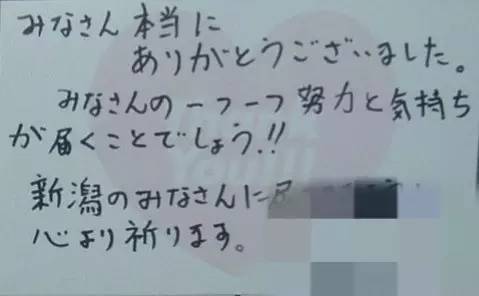 みなさん本当に
ありがとうございました。
みなさんの一つ一つ努力と気持ち
が届くことでしょう!!
新潟のみなさんに
心より祈ります。